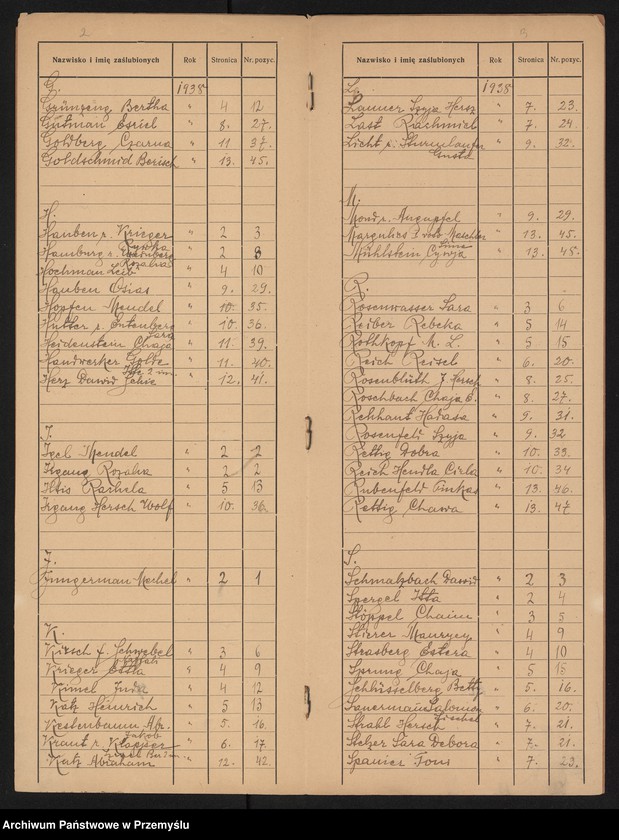 2
Nazwisko i imię zaślubionych Rok Stronica Nr. pozyc.
G. 1938
Grünzeug Bertha " 4 12
Gutman Esriel " 8. 27.
Goldberg Czarna " 11 37.
Goldschmid Berisch " 13. 45.
H.
Hauben r. Krieger " 2 3
Rywka
Hamburg r. " 2 3
Rozalia
Hochman Leib " 4 10
Hauben Osias " 9. 29.
Hopfen Mendel " 10. 35.
Hutter r. " 10. 36.
Sara
Heidenstein Chaja " 11. 39.
Handwerker Golte " 11. 40.
Herz Dawid " 12. 41.
I.
Igel Mendel " 2 2
Irgang Rozalia " 2 2
Iltis Rachela " 5 13
Irgang Hersch Wolf " 10. 36
J.
Jungerman Mechel " 2 1
K.
Kirsch f. Schwebel " 3 6
Krieger Estka " 4 9
Kimel Juda " 4 12
Katz Heinrich " 5 13
Kestenbaum Abr. " 5. 16.
Jakob
Kraut r. Klagser " 6. 17.
Katz Abraham " 12. 42.
3
Nazwisko i imię zaślubionych Rok Stronica Nr. pozyc.
L. 1938
Launer Szyja Hersz " 7. 23.
Last Rachmiel " 7. 24
Licht r. Sturmlaufer " 9. 32.
Gusta
M.
Mond r. " 9. 29.
Margulies " 13. 45.
Mühlstein Cywja " 13. 45.
R.
Rosenwasser Sara " 3 6
Reiber Rebeka " 5 14
Rothkopf M. L. " 5 15
Reich Reisel " 6. 20.
Rosenblüth J. Hersch " 8. 25.
Roschbach Chaja E. " 8. 27.
Rekhant Hadasa " 9. 31.
Rosenfeld Szyja " 9. 32
Rettig Dobra " 10. 33.
Reich Hendla Cirla " 10. 34
Rubenfeld Pinkas " 13. 46.
Rettig Chawa " 13. 47
S.
Schmalzbach Dawid " 2 3
Spergel Itta " 2 4
Stöppel Chaim " 3 5
Stierer Maurycy " 4 9
Strasberg Estera " 4 10
Sprung Chaja " 5 15
Schlüsselberg Betty " 5. 16.
Sauerman Salomon " 6. 20.
Fischel
Strahl Hersch " 7. 21.
Stelzer Sara Debora " 7. 21.
Spanier " 7. 23.
Archiwum Państwowe w Przemyślu